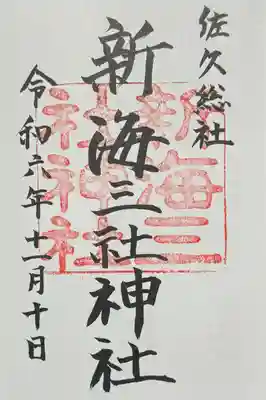 佐久総社
新海三社神社
令和六年十一月十日
新海三
社神社